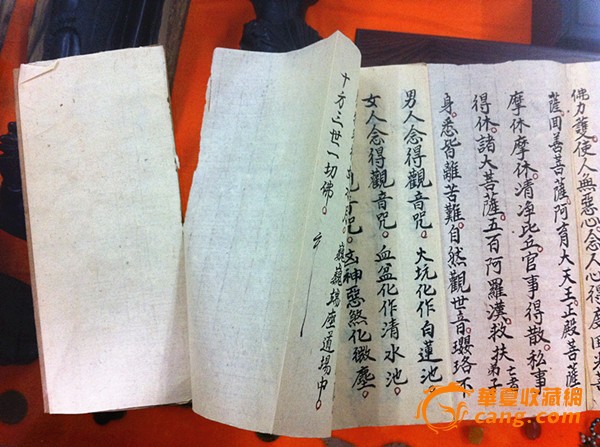 佛力護使人無惡心念人心得度回光菩
薩回善菩薩阿育大天王正殿菩薩
摩休摩休清净比丘官事得散私事
得休諸大菩薩五百阿羅漢救扶亡者弟子
身悉皆離苦難自然觀世音瓔珞不
男人念得觀音咒。大坑化作白蓮池。
女人念得觀音咒。血盆化作清水池。
咒。凶神惡煞化微塵。
巍巍端座道場中。
十方三世一切佛。
華夏收藏網
cang.com